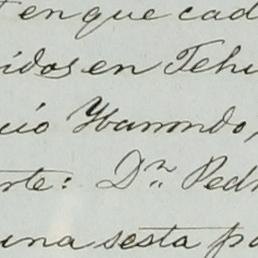 en que cad
idos en Tehu
uió Ybarrondo,
rte: Dn. Ped
una sesta pa